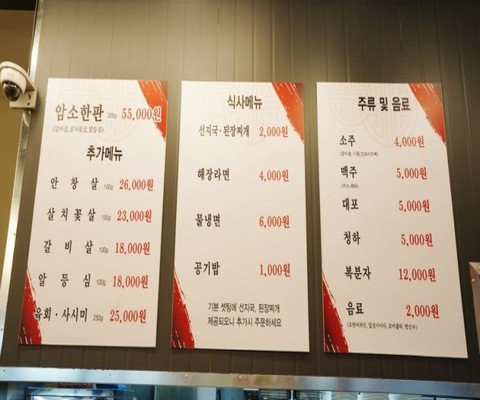 암소한판 300g 55,000원
추가메뉴
안창살 100g 26,000원
살치꽃살 100g 23,000원
갈비살 100g 18,000원
알등심 100g 18,000원
육회·사시미 250g 25,000원
식사메뉴
선지국·된장찌개 2,000원
해장라면 4,000원
물냉면 6,000원
공기밥 1,000원
기본 셋팅에 선지국, 된장찌개
제공되오니 추가시 주문하세요
주류 및 음료
소주 4,000원
맥주 5,000원
대포 5,000원
청하 5,000원
복분자 12,000원
음료 2,000원